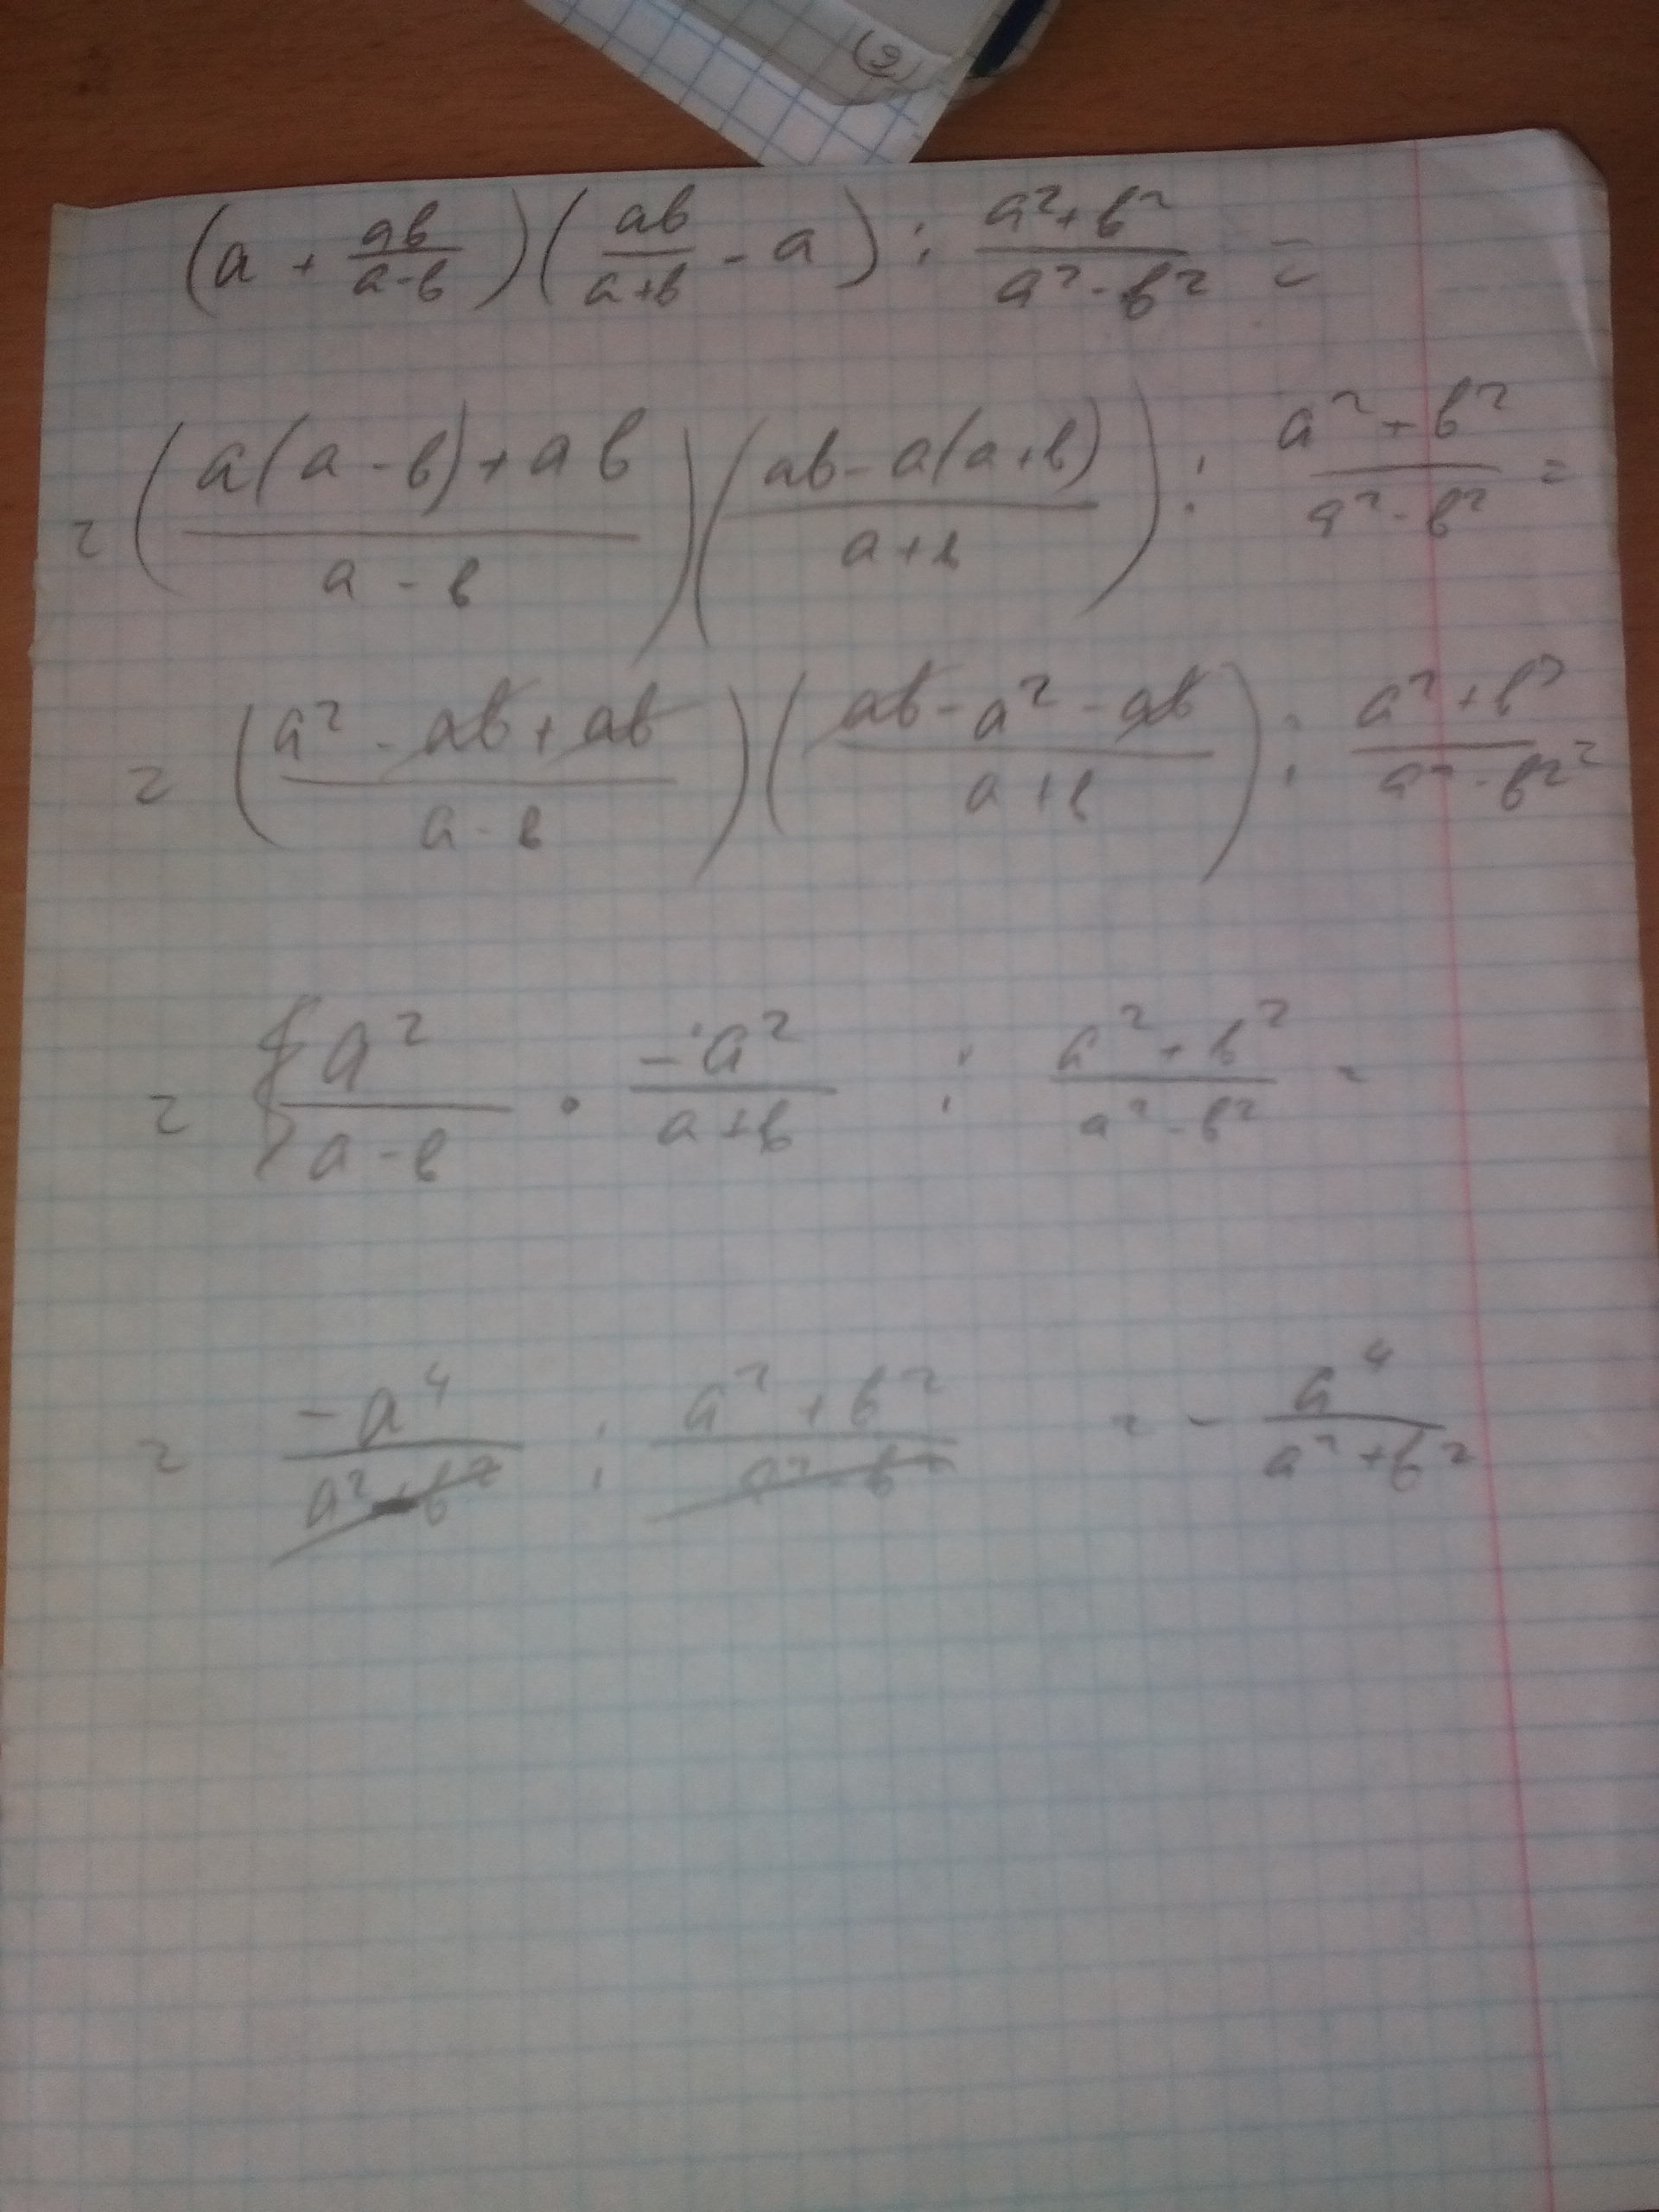 (9)
(a + ab/(a-b))(ab/(a+b) - a) : (a²+b²)/(a²-b²) =
= ((a(a-b)+ab)/(a-b))((ab-a(a+b))/(a+b)) : (a²+b²)/(a²-b²) =
= ((a²-ab+ab)/(a-b))((ab-a²-ab)/(a+b)) : (a²+b²)/(a²-b²)
= a²/(a-b) · -a²/(a+b) : (a²+b²)/(a²-b²) =
= -a⁴/(a²-b²) : (a²+b²)/(a²-b²) = - a⁴/(a²+b²)